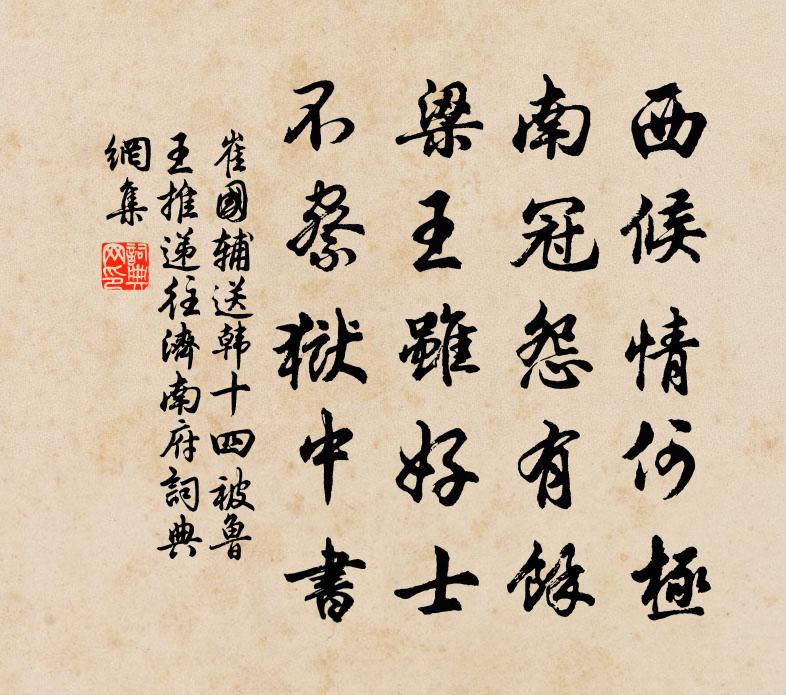 西候情何極
南冠怨有餘
梁王雖好士
不察獄中書
崔國輔送韩十四被魯
王推递往濟南府詞典
網集
詞典
网印